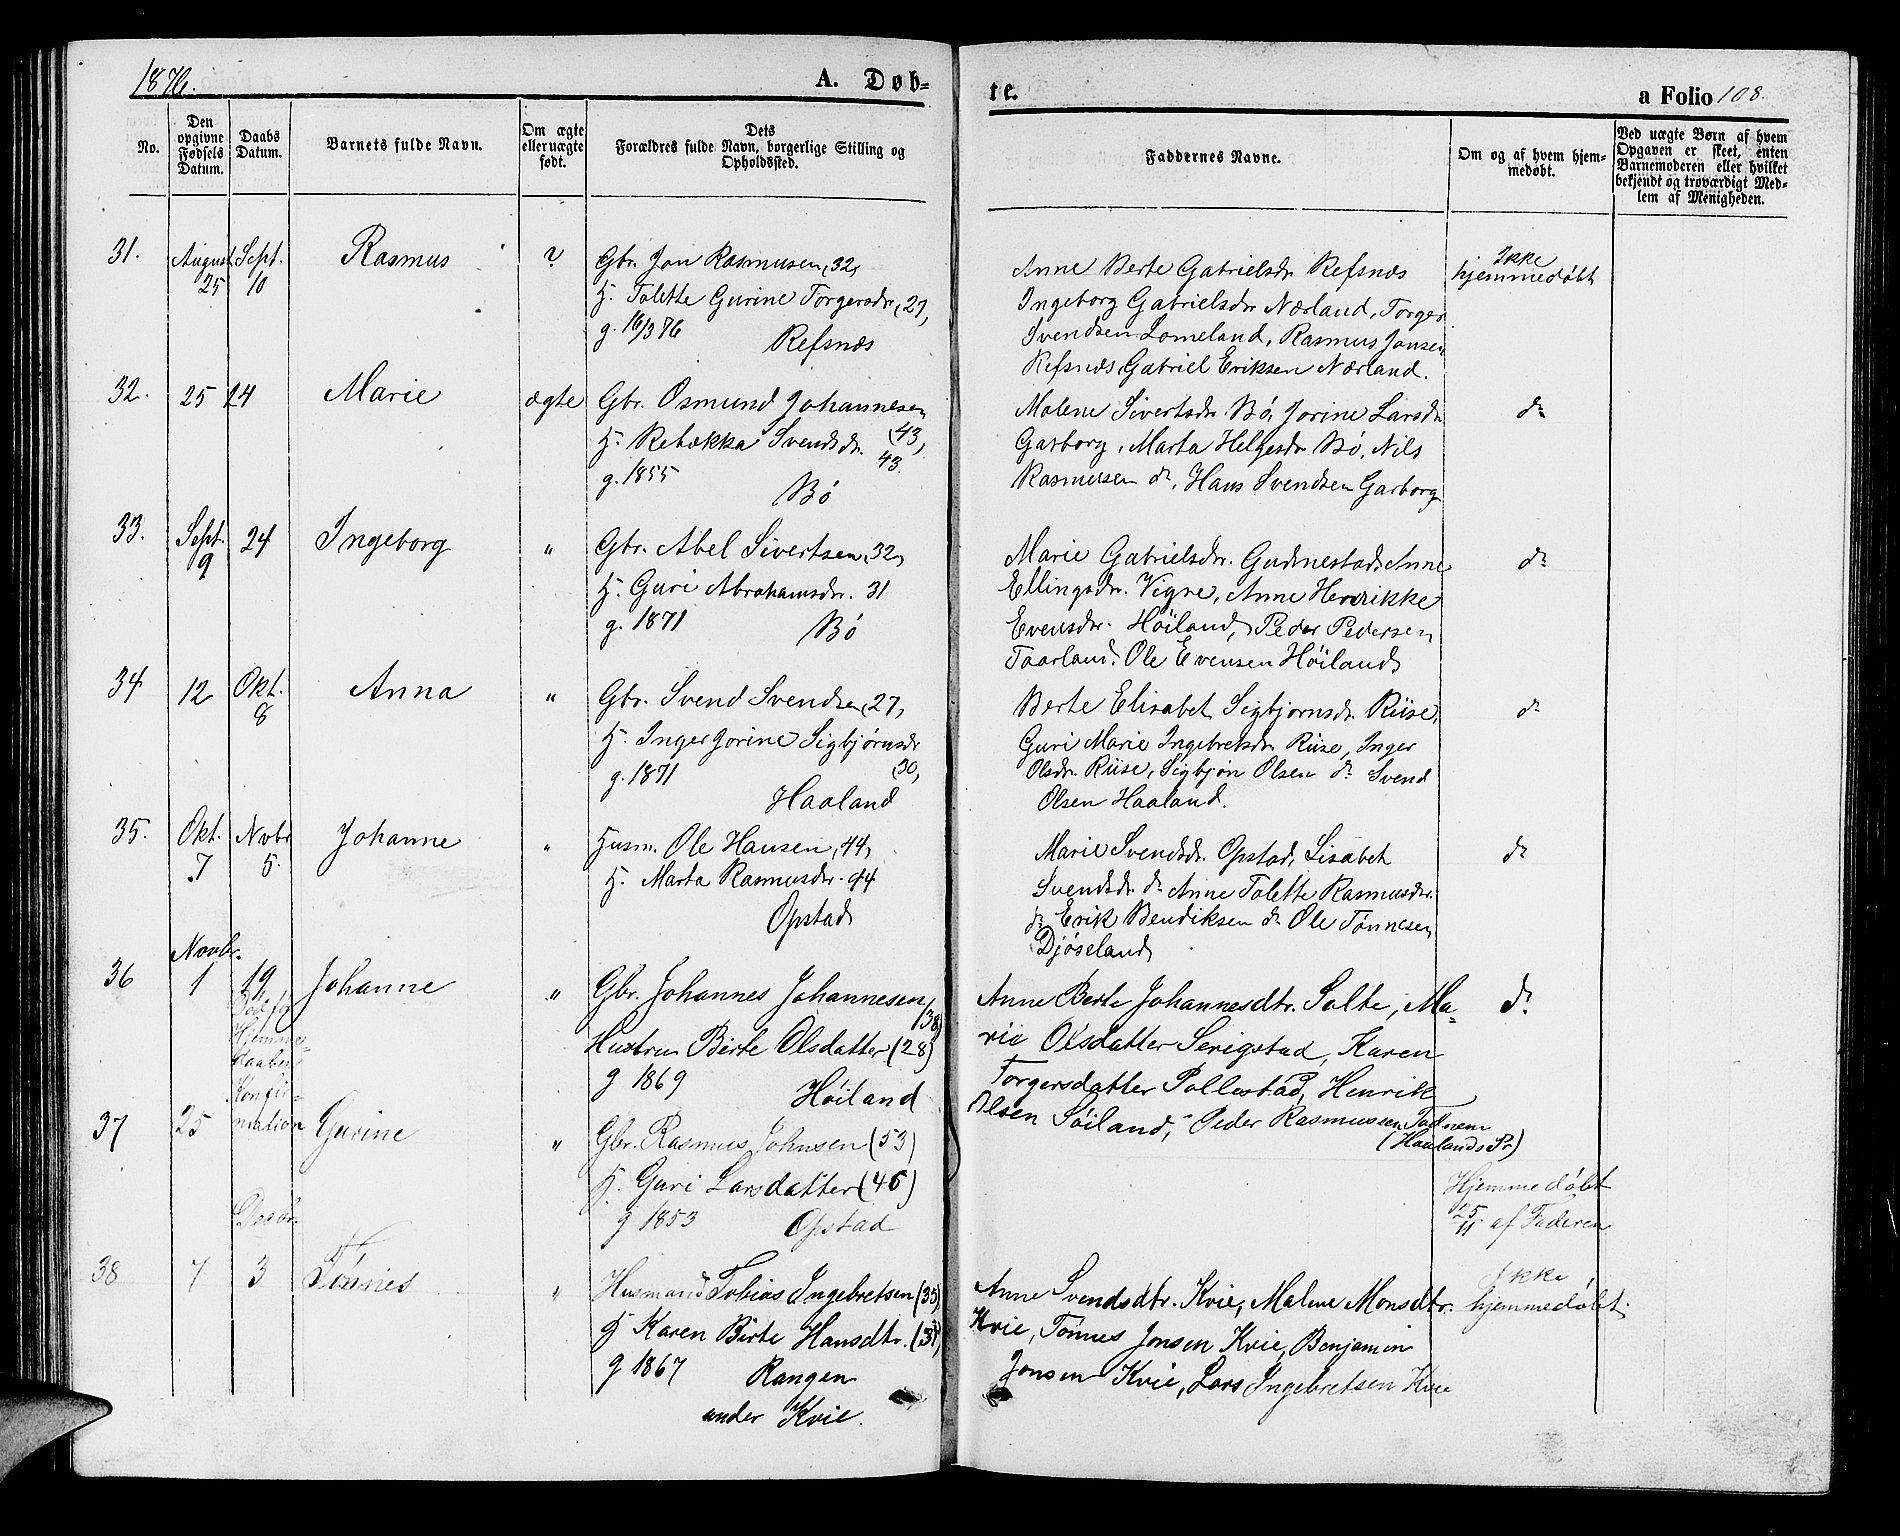 1876.
A. Døb-
te.
a Folio 108.
No.
Den opgivne Fødsels Datum.
Daabs Datum.
Barnets fulde Navn.
Om ægte eller uægte født.
Dets
Forældres fulde Navn, borgerlige Stilling og
Opholdssted.
Faddernes Navne.
Om og af hvem hjem-
medøbt.
Ved uægte Børn af hvem
Opgaven er skeet, enten
Barnemoderen eller hvilket
bekjendt og troværdigt Med-
lem af Menigheden.
31. August 25 Sept. 10 Rasmus ?
Gbr. Jon Rasmusen, 32,
H. Tolette Gurine Torgersdr, 27,
g. 16/3 76 Refsnæs
Anne Berte Gabrielsdr Refsnæs
Ingeborg Gabrielsdr Nærland, Torger
Svendsen Lomeland, Rasmus Jonsen
Refsnæs, Gabriel Eriksen Nærland.
Ikke
hjemmedøbt
32. 25 24 Marie ægte
Gbr. Osmund Johannesen
(43,
H. Rebekka Svendsdr. 43.
g. 1855
Bø
Malene Sivertsdr Bø, Jorine Larsdr
Garborg, Marta Helgesdr Bø, Nils
Rasmusen do, Hans Svendsen Garborg
do
33. Sept. 9 24 Ingeborg "
Gbr. Abel Sivertsen, 32,
H. Guri Abrahamsdr. 31
g. 1871 Bø
Marie Gabrielsdr. Gudmestad, Anne
Ellingsdr. Vigre, Anne Henrikke
Evensdr. Høiland, Peder Pedersen
Taarland. Ole Evensen Høiland
do
34 12 Okt. 8 Anna "
Gbr. Svend Svendsen, 27,
H. Inger Jorine Sigbjørnsdr
g. 1871 (30,
Haaland
Berte Elisabet Sigbjornsdr. Riise,
Guri Marie Ingebretsdr Riise, Inger
Olsdr. Riise, Sigbjøn Olsen do Svend
Olsen Haaland.
do
35. Okt. 7 Novbr 5. Johanne "
Husm. Ole Hansen, 44,
H. Marta Rasmusdr. 44
Opstad
Marie Svendsdr. Opstad, Lisabet
Svendsdr. do Anne Tolette Rasmusdr.
do Erik Bendiksen do Ole Tønnesen
Djøseland
do
Novbr.
36 1 19 Johanne "
Gbr. Johannes Johannesen
(38)
Hustru Birte Olsdatter (28)
g 1869 Høiland
Anne Berte Johannesdtr. Salte, Ma-
rie Olsdatter Serigstad, Karen
Torgersdatter Pollestad, Henrik
Olsen Søiland, Peder Rasmussen Tadnem
(Haalands Pr)
do
Hjemme-
daaben
Konfir-
mation
37 25 Gurine "
Gbr. Rasmus Johnsen (53)
H. Guri Larsdatter (46)
g 1853 Opstad
Hjemmedøbt
25/11 af Faderen
Decbr.
38 7 3 Tönnes "
Husmand Tobias Ingebretsen (35)
H Karen Birte Hansdtr.
g 1867 Rangen
under Kvie.
Anne Svendsdtr. Kvie, Malene Monsdtr.
Kvie, Tönnes Jonsen Kvie, Benjamin
Jonsen Kvie, Lars Ingebretsen Kvie
Ikke
hjemmedøbt.